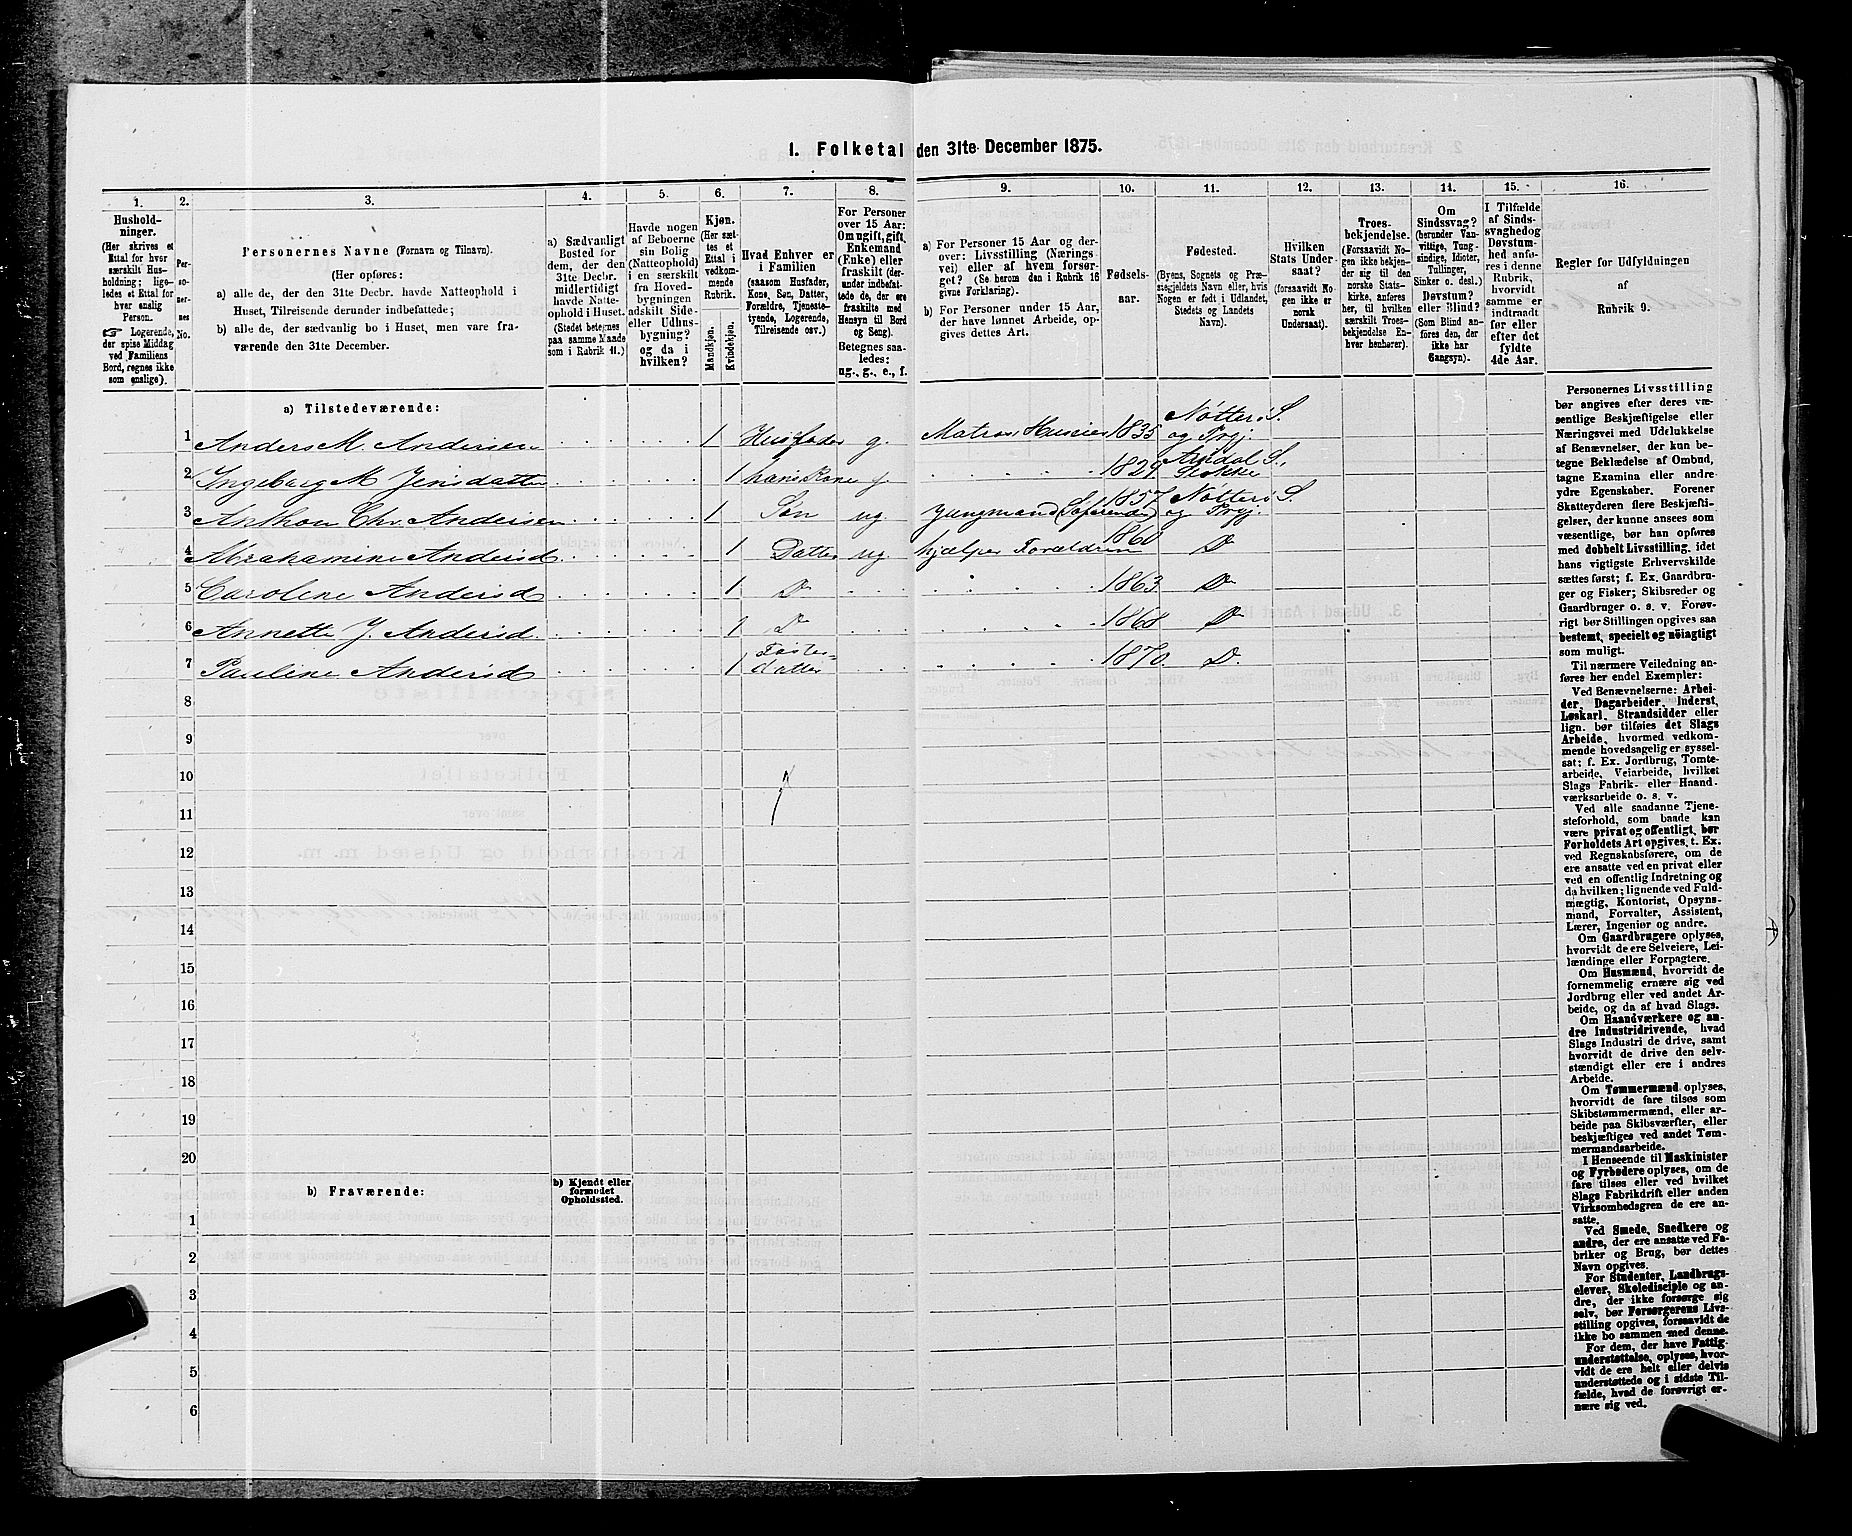 1. Folketal den 31te December 1875.
1.
2.
3.
4.
5.
6.
7.
8.
9.
10.
11.
12.
13.
14.
15.
16.
Hushold-
ninger.
(Her skrives et
Ettal for hver
særskilt Hus-
holdning; lige-
ledes et Ettal for
hver enslig
Person.
☞ Logerende,
der spise Middag
ved Familiens
Bord, regnes ikke
som enslige).
Per-
so-
ner-
nes
No.
Personernes Navne (Fornavn og Tilnavn).
(Her opføres:
a) alle de, der den 31te Decbr. havde Natteophold i
Huset, Tilreisende derunder indbefattede;
b) alle de, der sædvanlig bo i Huset, men vare fra-
værende den 31te December.
a) Sædvanligt
Bosted for
dem, der den
31te Decbr.
midlertidigt
havde Natte-
ophold i Huset.
(Stedet betegnes
paa samme Maade
som i Rubrik 11.)
Havde nogen
af Beboerne
sin Bolig
(Natteophold)
i en særskilt
fra Hoved-
bygningen
adskilt Side-
eller Udhus-
bygning?
og da i
hvilken?
Kjøn.
(Her sæt-
tes et
Ettal i
vedkom-
mende
Rubrik.
Mandkjøn.
Kvindekjøn.
Hvad Enhver er
i Familien
(saasom Husfader,
Kone, Søn, Datter,
Forældre, Tjeneste-
tyende, Logerende,
Tilreisende osv.)
For Personer
over 15 Aar:
Om ugift, gift,
Enkemand
(Enke) eller
fraskilt (der-
under indbefat-
tede de, der ere
fraskilte med
Hensyn til Bord
og Seng).
Betegnes saa-
ledes:
ug., g., e., f.
a) For Personer 15 Aar og der-
over: Livsstilling (Nærings-
vei) eller af hvem forsør-
get? (Se herom den i Rubrik 16
givne Forklaring).
b) For Personer under 15 Aar,
der have lønnet Arbeide, op-
gives dettes Art.
Fødsels-
aar.
Fødested.
(Byens, Sognets og Præ-
stegjeldets Navn eller, hvis
Nogen er født i Udlandet,
Stedets og Landets
Navn).
Hvilken
Stats Under-
saat?
(forsaavidt No-
gen ikke er
norsk
Undersaat).
Troes-
bekjendelse.
(Forsaavidt No-
gen ikke bekjen-
der sig til den
norske Stats-
kirke, anføres
her, til hvilken
særskilt Troes-
bekjendelse En-
hver henhører).
Om
Sindssvag?
(herunder Van-
vittige, Tung-
sindige, Idioter,
Tullinger,
Sinker o. desl.)
Døvstum?
eller Blind?
(Som Blind an-
føres den, der
ikke har
Gangsyn).
I Tilfælde
af Sinds-
svaghed og
Døvstum-
hed anfø-
res i denne
Rubrik,
hvorvidt
samme er
indtraadt
før eller
efter det
fyldte
4de Aar.
Regler for Udfyldningen
af
Rubrik 9.
a) Tilstedeværende:
1 Anders M. Andersen 1 Husfader g. Matros, Huseier 1835 Nøtterø S. og Prgj.
2 Ingeborg M Jensdatter 1 hans Kone g. 1829 S. Stokke
3 Anthon Chr. Andersen 1 Søn ug Jungmand 1857 Nøtterø S. og Prgj.
4 Abrahamine Andersd. 1 Datter ug hjælper Forældrene 1860 Do
5 Carolene Andersd 1 Do 1863 Do
6 Annette J. Andersd. 1 Do 1868 Do
7 Pauline Andersd 1 Foster-
datter 1870. Do.
8
9
10
11
12
13
14
15
16
17
18
19
20
b) Fraværende:
b) Kjendt eller
formodet
Opholdssted.
1
2
3
4
5
6
Personernes Livsstilling
bør angives efter deres væ-
sentlige Beskjæftigelse eller
Næringsvei med Udelukkelse
af Benævnelser, der kun be-
tegne Beklædelse af Ombud,
tagne Examina eller andre
ydre Egenskaber. Forener
Skatteyderen flere Beskjæfti-
gelser, der kunne ansees som
væsentlige, bør han opføres
med dobbelt Livsstilling, idet
hans vigtigste Erhvervskilde
sættes først; f. Ex. Gaardbru-
ger og Fisker; Skibsreder og
Gaardbruger o. s. v. Forøv-
rigt bør Stillingen opgives saa
bestemt, specielt og nöiagtigt
som muligt.
Til nærmere Veiledning an-
føres her endel Exempler:
Ved Benævnelserne: Arbei-
der, Dagarbeider, Inderst,
Løskarl, Strandsidder eller
lign. bør tilføies det Slags
Arbeide, hvormed vedkom-
mende hovedsagelig er syssel-
sat; f. Ex. Jordbrug, Tomte-
arbeide, Veiarbeide, hvilket
Slags Fabrik- eller Haand-
værksarbeide o. s. v.
Ved alle saadanne Tjene-
steforhold, som baade kan
være privat og offentligt, bør
Forholdets Art opgives, t. Ex.
ved Regnskabsførere, om de
ere ansatte ved en privat eller
ved en offentlig Indretning og
da hvilken; lignende ved Fuld-
mægtig, Kontorist, Opsyns-
mand, Forvalter, Assistent,
Lærer, Ingeniør og andre.
Om Gaardbrugere oplyses,
hvorvidt de ere Selveiere, Lei-
lændinge eller Forpagtere.
Om Husmænd, hvorvidt de
fornemmelig ernære sig ved
Jordbrug eller ved andet Ar-
beide, og da af hvad Slags.
Om Haandværkere og an-
dre Industridrivende, hvad
Slags Industri de drive, samt
hvorvidt de drive den selv-
stændigt eller ere i andres
Arbeide.
Om Tømmermænd oplyses,
hvorvidt de fare tilsøs som
Skibstømmermænd, eller ar-
beide paa Skibsværfter, eller
beskjæftiges ved andet Tøm-
mermandsarbeide.
I Henseende til Maskinister
og Fyrbødere oplyses, om de
fare tilsøs eller ved hvilket
Slags Fabrikdrift eller anden
Virksomhedsgren de ere an-
satte.
Ved Smede, Snedkere og
andre, der ere ansatte ved Fa-
briker og Brug, bør dettes
Navn opgives.
For Studenter, Landbrugs-
elever, Skoledisciple og an-
dre, der ikke forsørge sig
selv, bør Forsørgerens Livs-
stilling opgives, forsaavidt de
ikke bo sammen med denne.
For dem, der have Fattig-
understøttelse, oplyses, hvor-
vidt de ere helt eller delvis
understøttede og i sidste Til-
fælde, hvad de forøvrigt er-
nære sig ved.